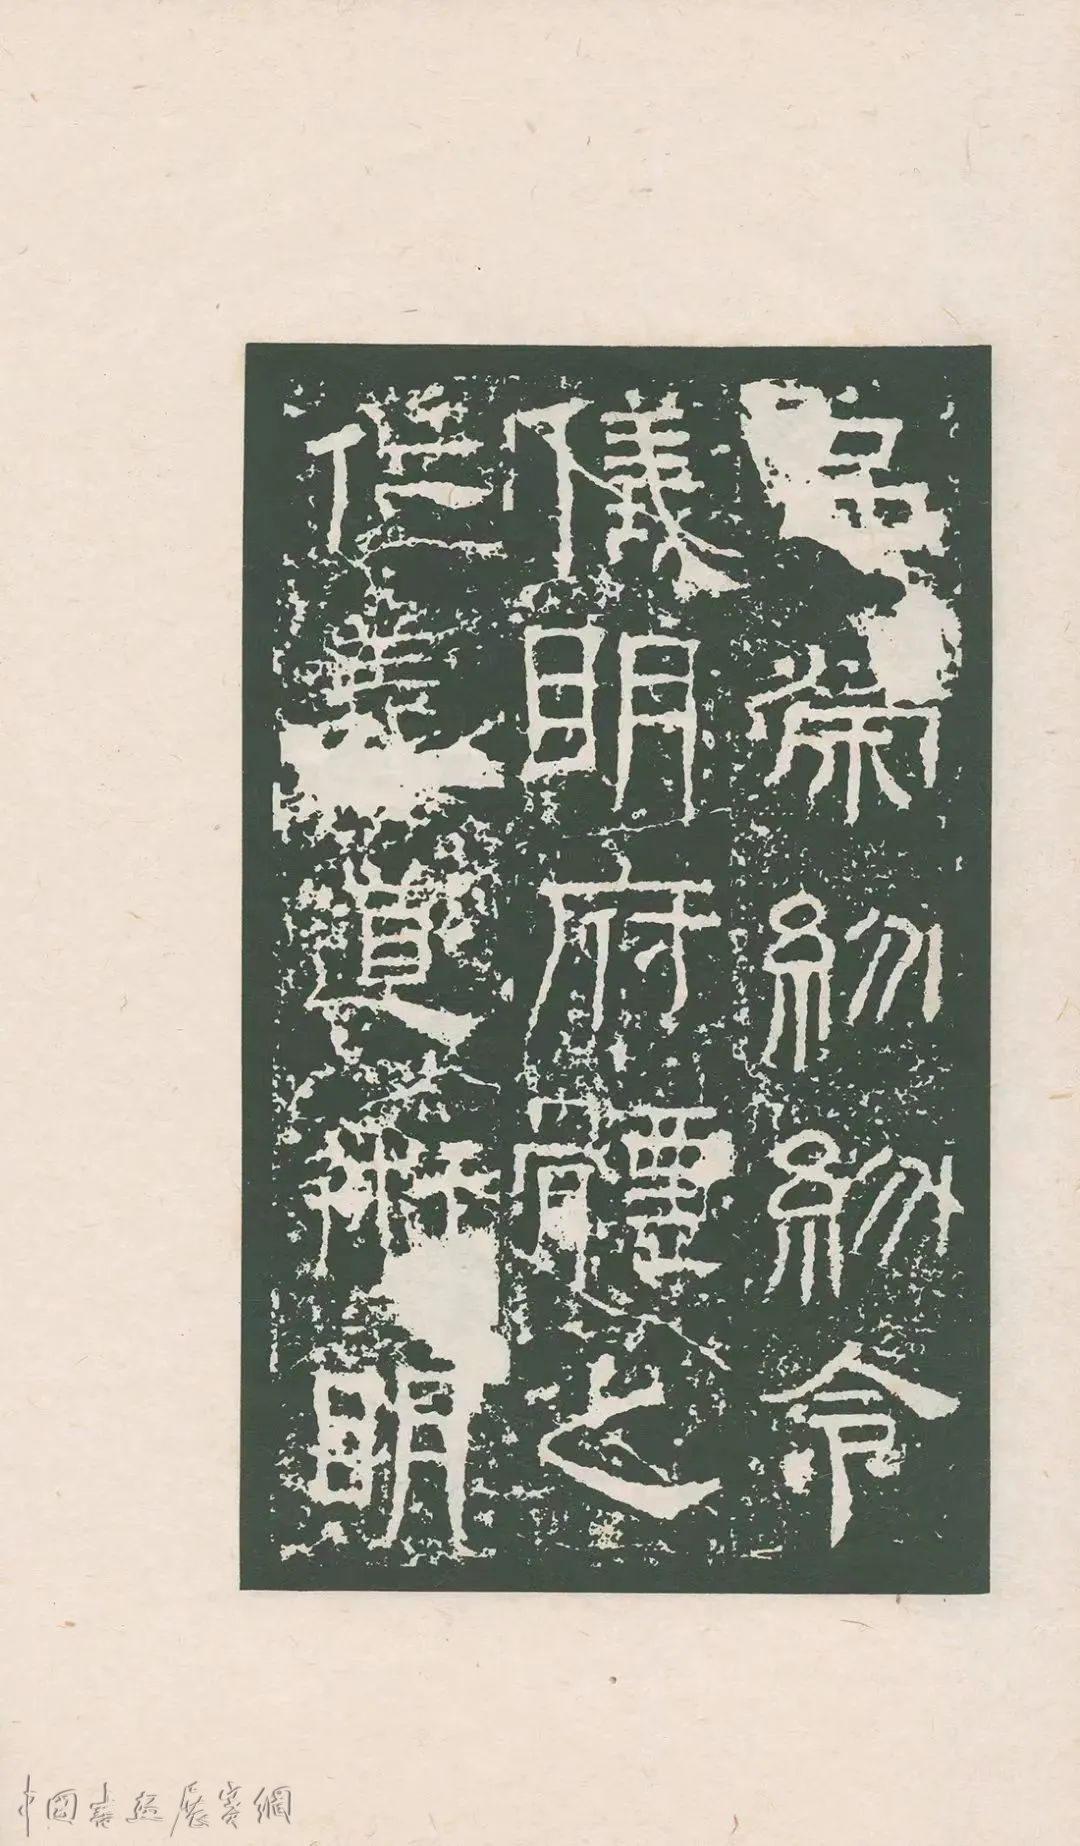 榮紛紛令
儀明府體之
仁義道術明
中国書法展賽網